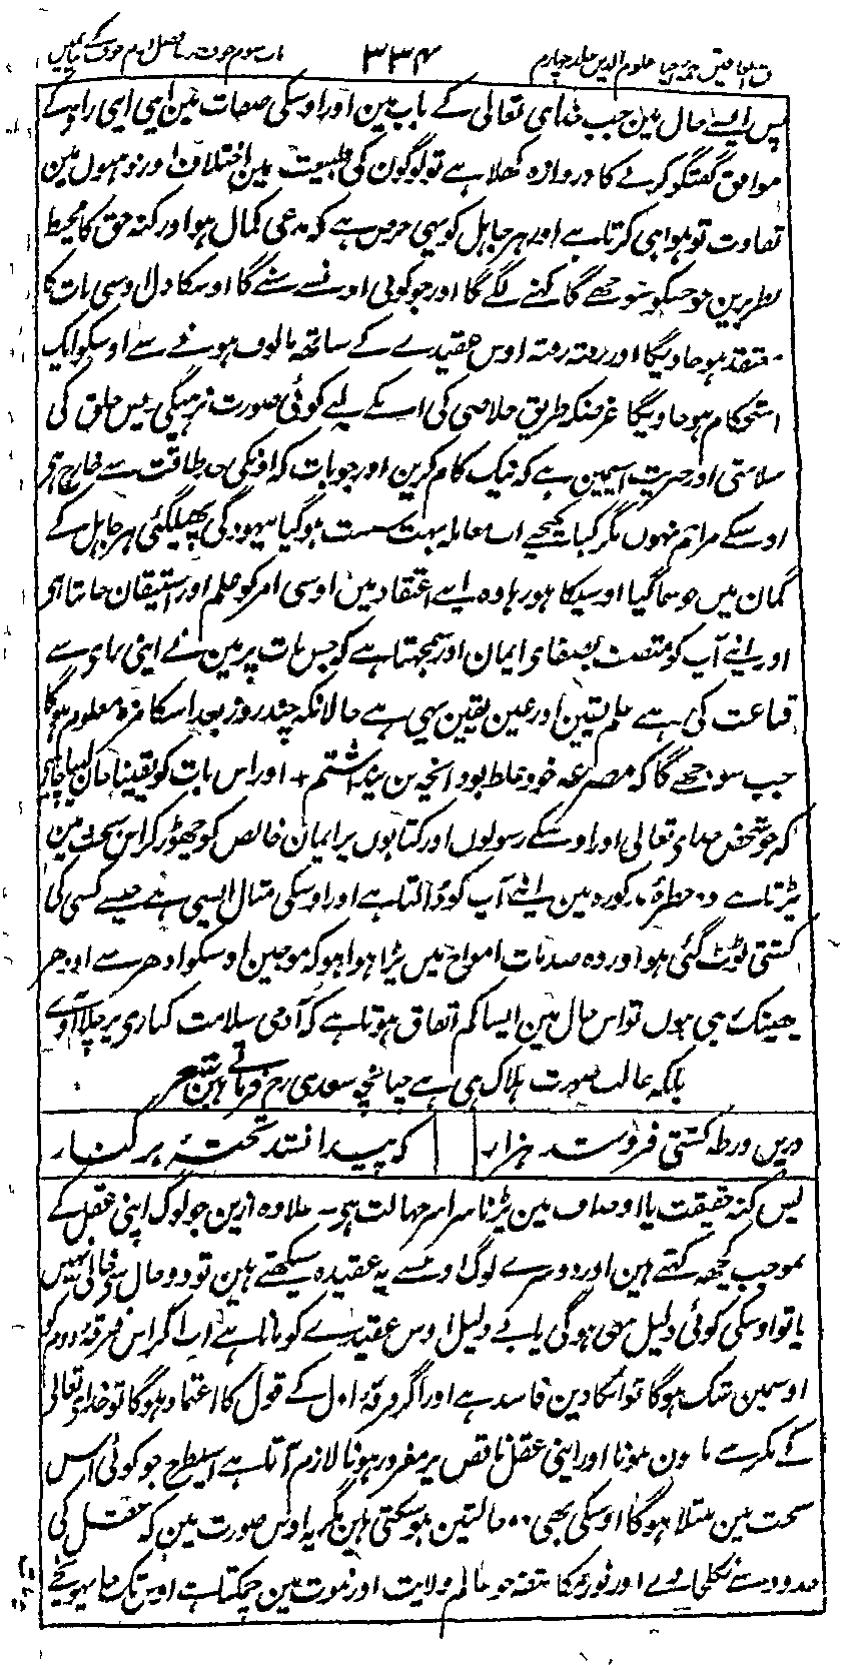 مذاق العارفین ترجمہ احیاء علوم الدین جلد چہارم ۳۳۴ باب سوم خوف و رجا فصل دوم خوف کے بیان میں
پس ایسے حال مین جب خدای تعالی کے باب مین اور اوسکی صفات مین اپنی اپنی راے کے
موافق گفتگو کرنے کا دروازہ کھلا ہے تو لوگون کی طبیعت مین اختلاف اور فہمون مین
تفاوت تو ہوا ہی کرتا ہے اور ہر جاہل کو یہی حرص ہے کہ مدعی کمال ہو اور کنہ حق کا محیط
بطرح مین جو جسکو سوجھے گا کہنے لگے گا اور جو کوئی اونسے سنے گا اوسکا دل اوسی بات کا
معتقد ہو جاویگا اور رفتہ رفتہ اوس عقیدے کے ساتھ مالوف ہونے سے اوسکو ایک
استحکام ہو جاویگا غرضکہ طریق خلاصی کی اب کے لیے کوئی صورت نرہیگی پس خلق کی
سلامتی اور خیریت اسیمین ہے کہ نیک کام کرین اور جو بات کہ اونکی حد طاقت سے خارج ہو
اوسکے مزاحم نہوں مگر کیا کیجیے اب معاملہ بہت سست ہو گیا بیہودگی پھیل گئی ہر جاہل کے
گمان میں جو سما گیا اوسیکا ہو رہا وہ اپنے اعتقاد میں اوسی امر کو علم اور استیقان جانتا ہو
اور اپنے آپ کو متصف بصفای ایمان اور سمجھتا ہے کہ جس بات پر مین نے اپنی رای سے
قناعت کی ہے علم یقین اور عین یقین یہی ہے حالانکہ چند روز بعد اسکا مزہ معلوم ہو گا
جب سوجھے گا کہ مصرعہ خود غلط بود آنچہ من پنداشتم + اور اس بات کو یقینا جان لینا چاہیے
کہ جو شخص خدای تعالی اور اوسکے رسولوں اور کتابوں پر ایمان خالص کو چھوڑ کر اس بحث مین
پڑتا ہے وہ خطرہ مذکورہ مین اپنے آپ کو ڈالتا ہے اور اوسکی مثال ایسی ہے جیسے کسی کی
کشتی ٹوٹ گئی ہو اور وہ صدمات امواج میں پڑا ہوا ہو کہ موجین اوسکو ادھر سے اودھر
پھینک رہی ہوں تو اس حال مین ایسا کم اتفاق ہوتا ہے کہ آدمی سلامت کناری پر چلا آوے
بلکہ غالب صورت ہلاک ہی ہے چنانچہ سعدی رح فرماتے ہین شعر
درین ورطہ کشتی فروشد ہزار کہ پیدا نشد تختۂ بر کنار
پس کنہ حقیقت یا اوصاف مین پڑنا سراسر جہالت ہی۔ علاوہ ازین جو لوگ اپنی عقل کے
بموجب کچھ کہتے ہین اور دوسرے لوگ اونسے یہ عقیدہ سیکھتے ہین تو دو حال سے خالی نہیں
یا تو اوسکی کوئی دلیل بھی ہو گی یا بے دلیل اوس عقیدے کو مانا ہے اب اگر اس فرقۂ دوم کو
اوسمین شک ہو گا تو انکا دین فاسد ہے اور اگر فرقۂ اول کے قول کا اعتماد ہو گا تو خدای تعالی
کے مکر سے مامون ہونا اور اپنی عقل ناقص پر مغرور ہونا لازم آتا ہے اسیطرح جو کوئی اس
بحث مین مبتلا ہو گا اوسکی بھی دو حالتین ہو سکتی ہین مگر یہ اوس صورت مین کہ عقل کی
حدود سے نکل جاوے اور نور مکاشفہ جو عالم ولایت اور نبوت مین چمکتا ہے اوس تک جا پہونچے